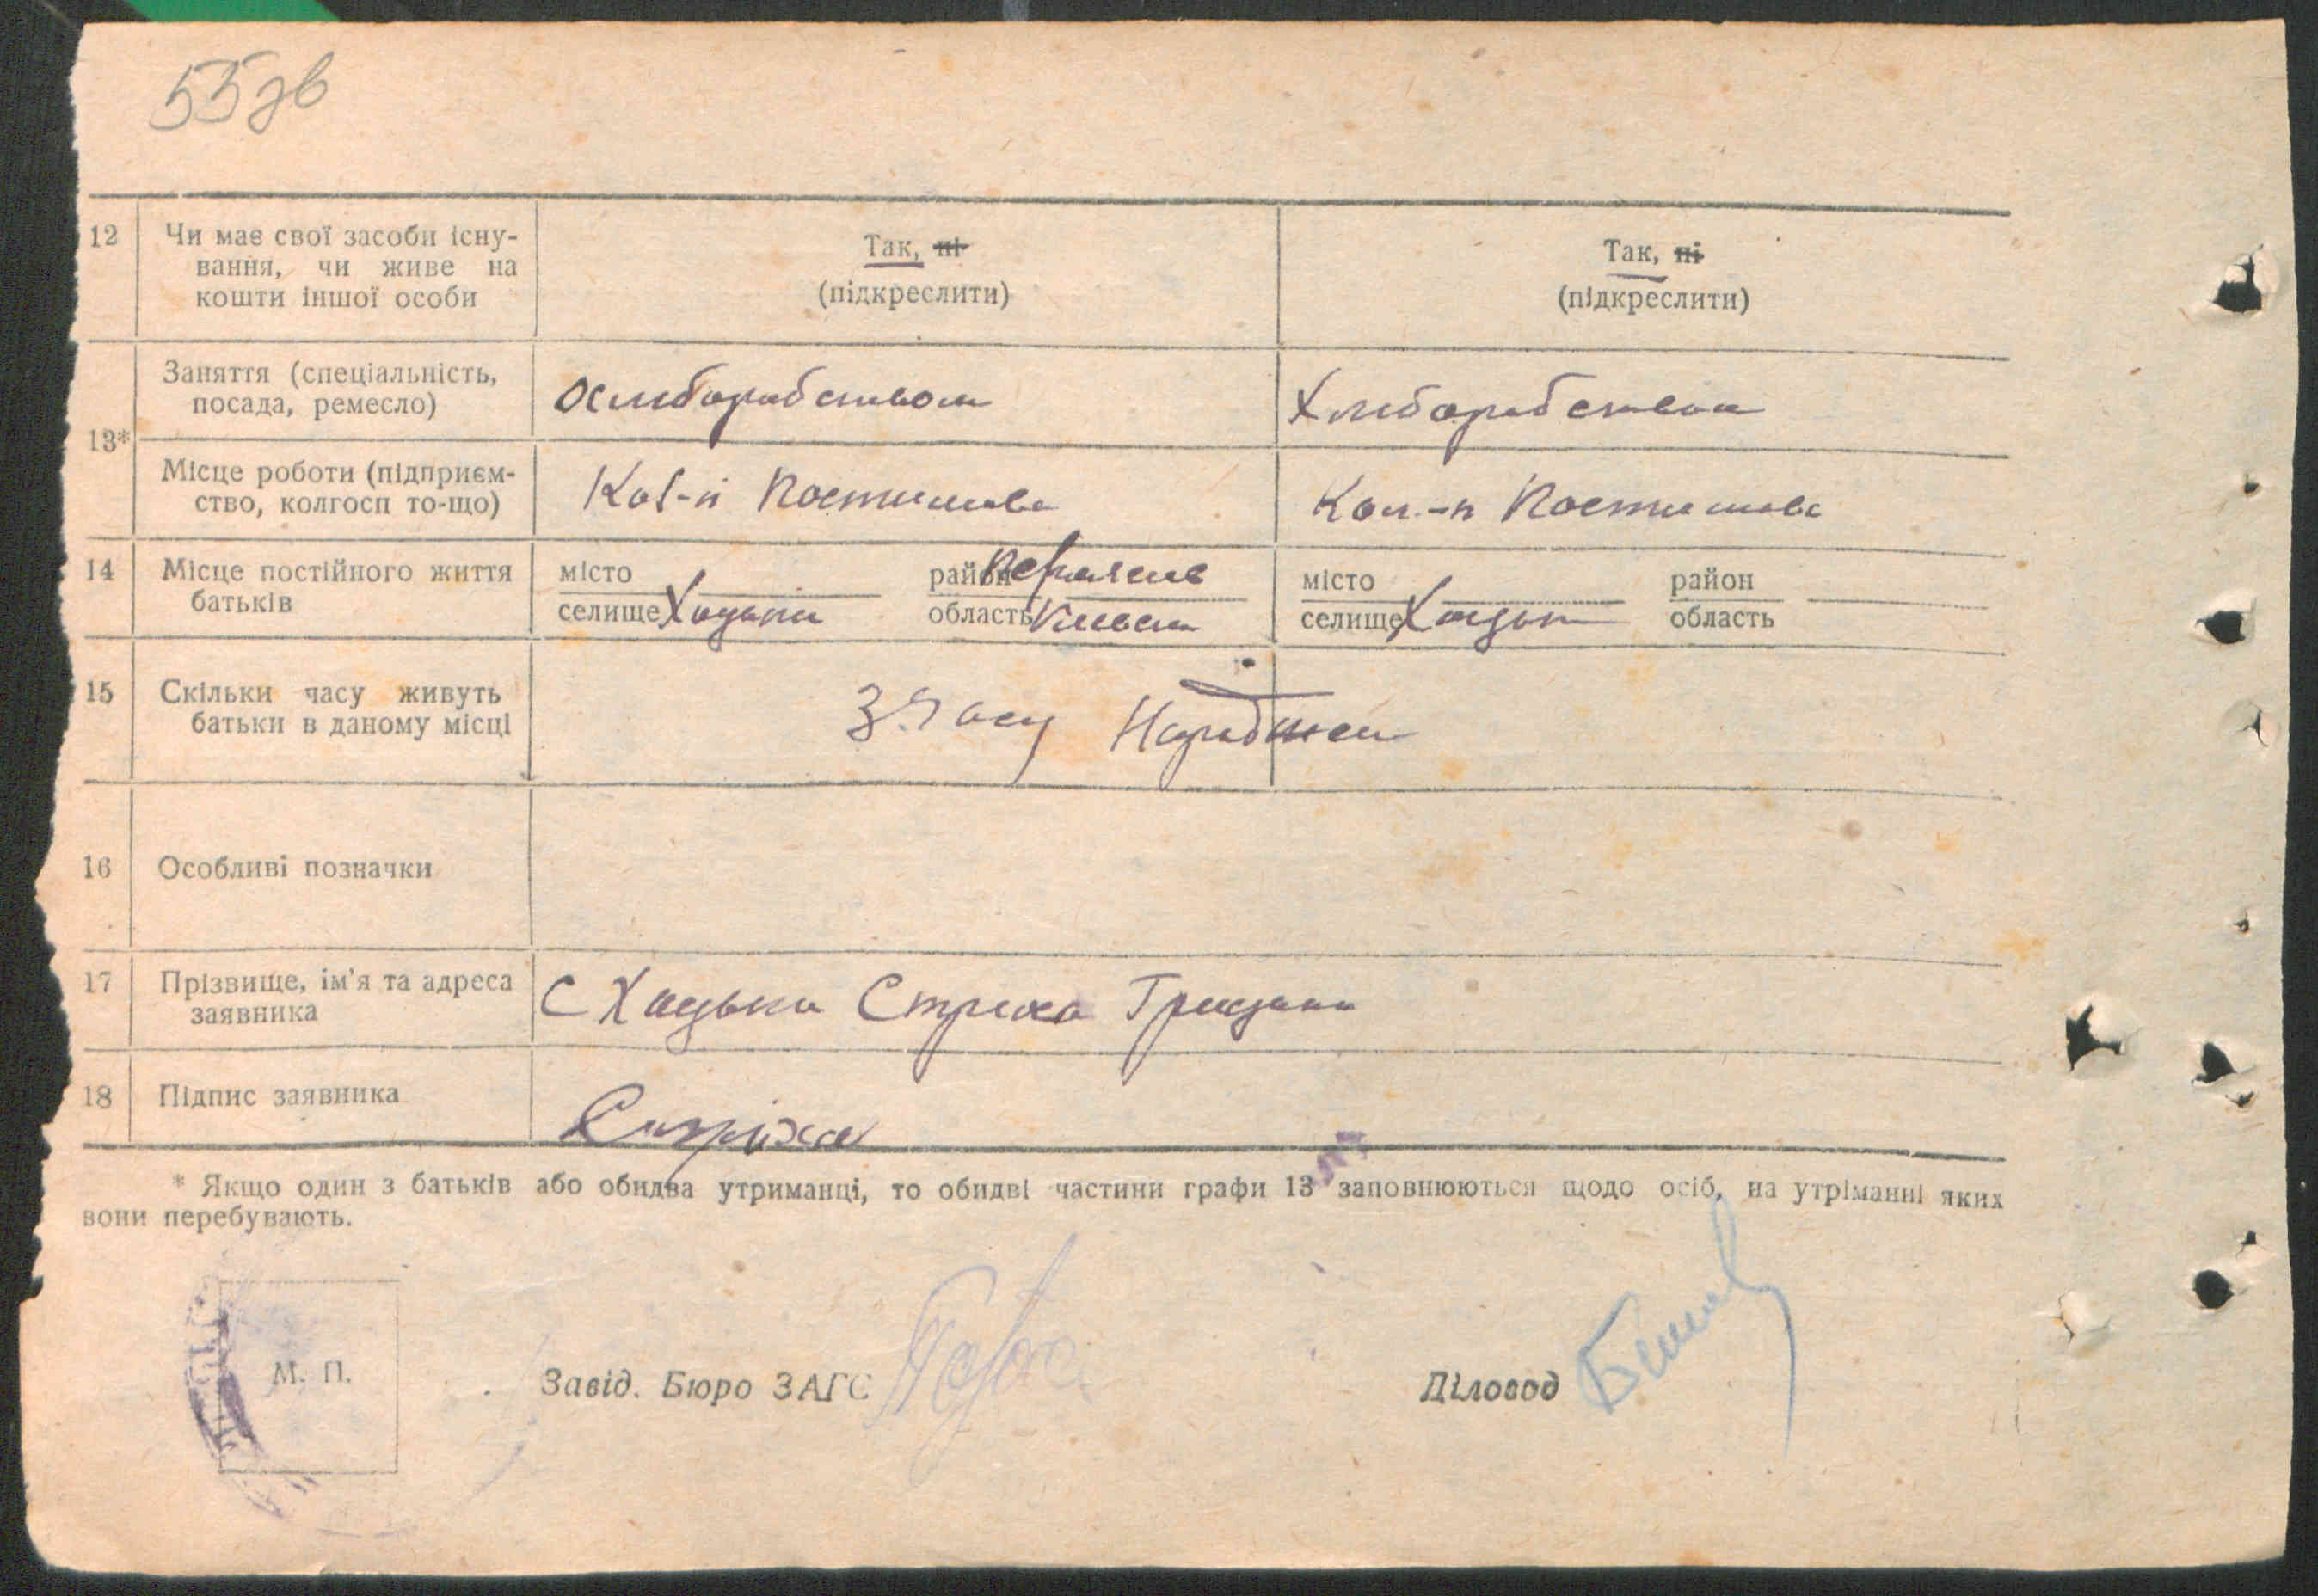 55зв
12 Чи має свої засоби існу-
вання, чи живе на
кошти іншої особи
Так, ні
(підкреслити)
Так, ні
(підкреслити)
13*
Заняття (спеціальність,
посада, ремесло)
Хліборобством
Хліборобством
Місце роботи (підприєм-
ство, колгосп то-що)
Кол-п Постишева
Кол-п Постишева
14 Місце постійного життя
батьків
місто район
селище Хацьки область Київськ
місто район
селище Хацьки область
15 Скільки часу живуть
батьки в даному місці
З часу Народжен
16 Особливі позначки
17 Прізвище, ім'я та адреса
заявника
С Хацьки Стріха Грицько
18 Підпис заявника
Стріха
* Якщо один з батьків або обидва утриманці, то обидві частини графи 13 заповнюються щодо осіб, на утріманні яких
вони перебувають.
М. П.
Завід. Бюро ЗАГС
Діловод